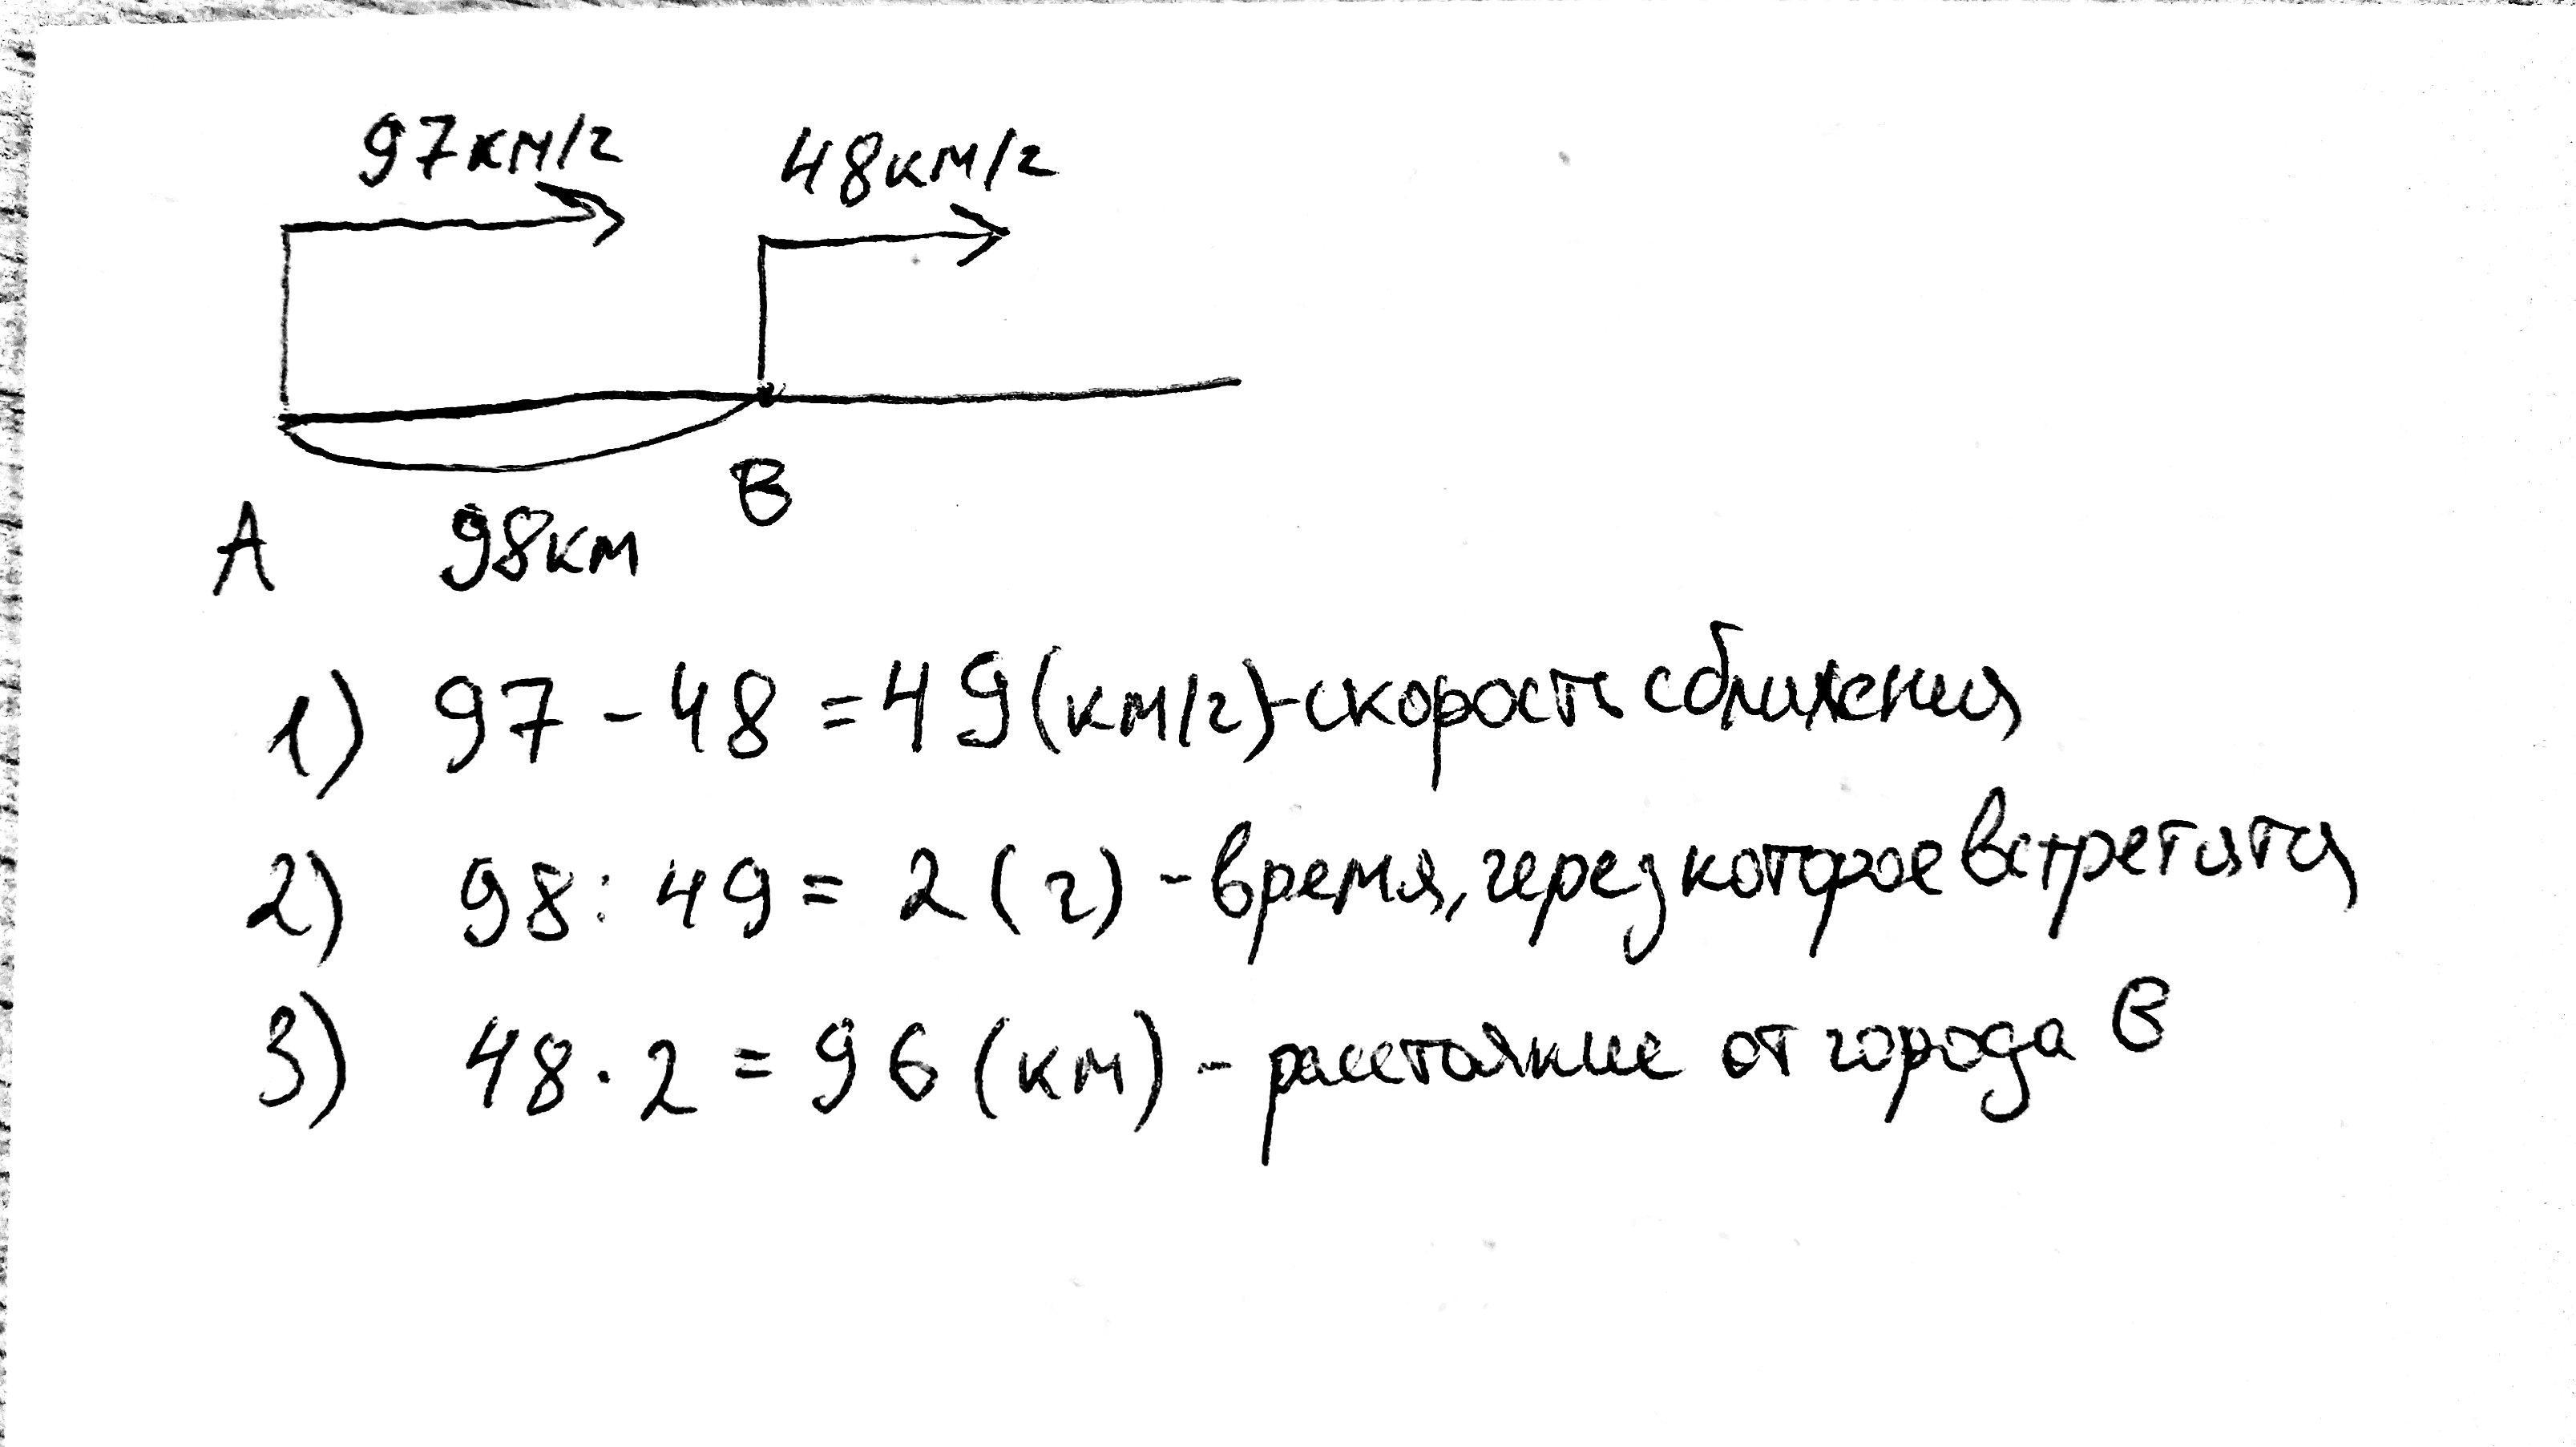 97км/ч 48км/ч
В
А 98км
1) 97 - 48 = 49 (км/ч) - скорость сближения
2) 98 : 49 = 2 (ч) - время, через которое встретятся
3) 48 · 2 = 96 (км) - расстояние от города В